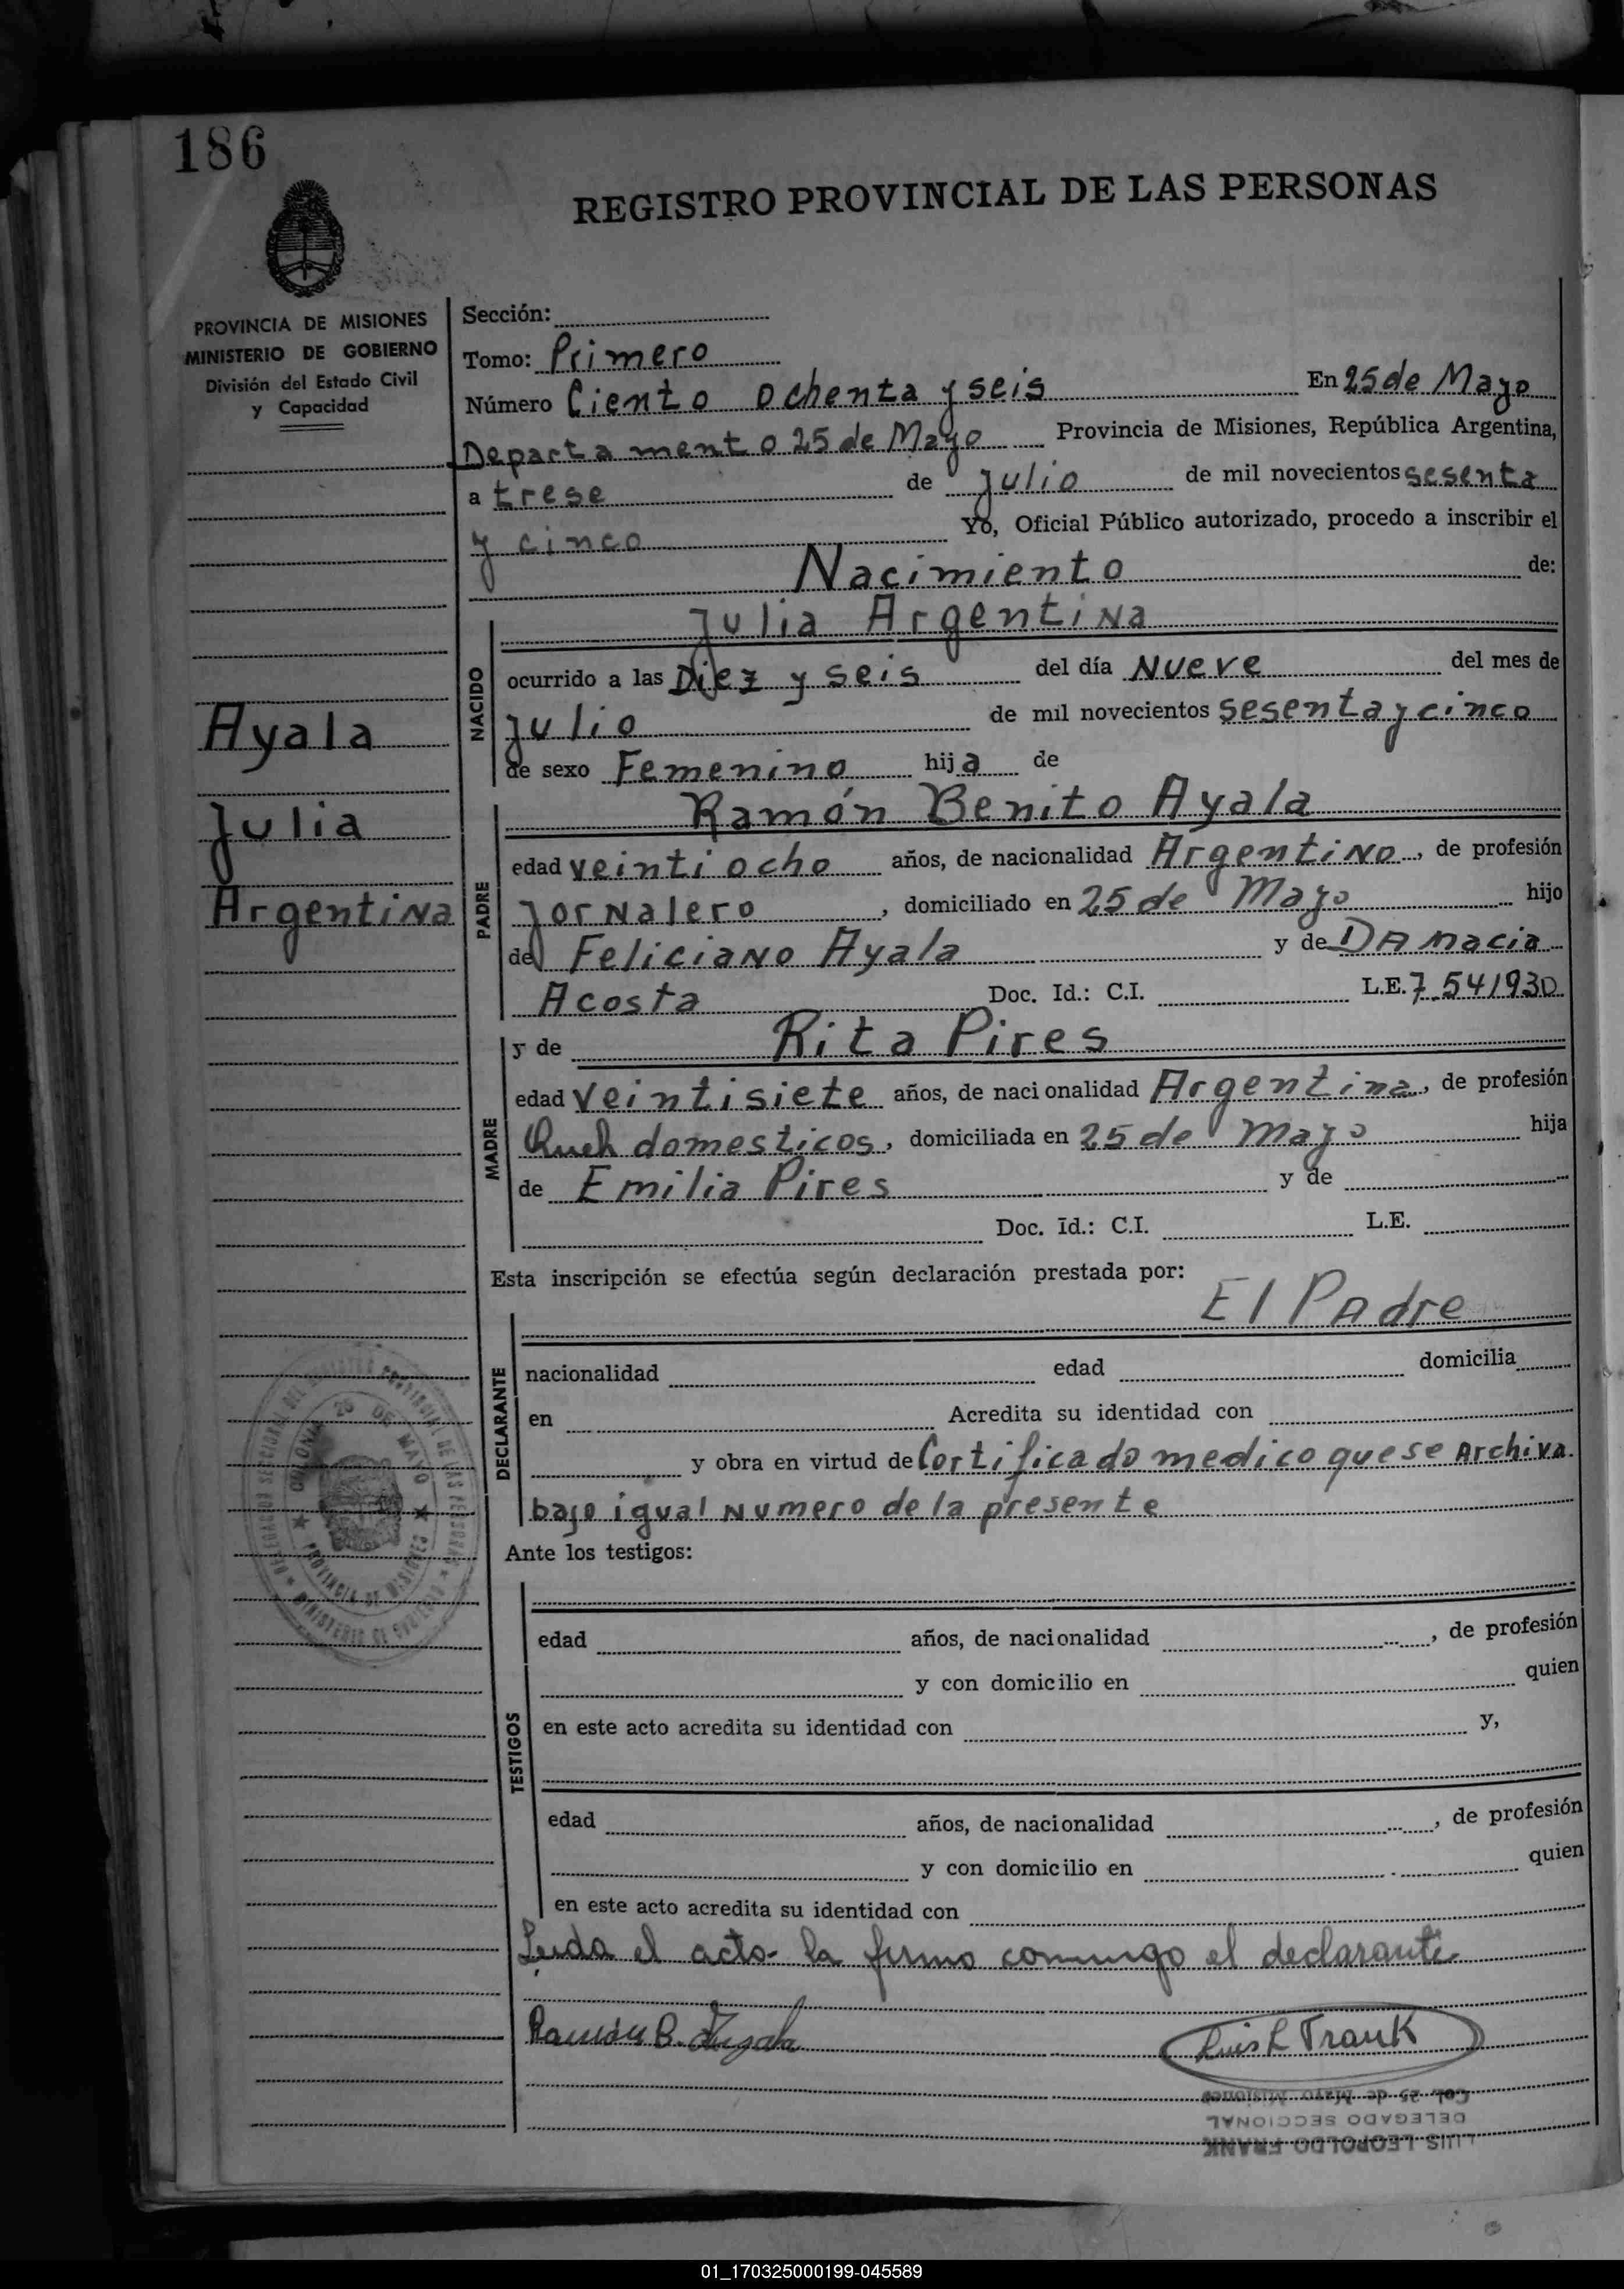 186
REGISTRO PROVINCIAL DE LAS PERSONAS
PROVINCIA DE MISIONES
MINISTERIO DE GOBIERNO
División del Estado Civil
y Capacidad
Ayala
Julia
Argentina
Sección:
Tomo: Primero
Número Ciento ochenta y seis En 25 de Mayo
Departamento 25 de Mayo Provincia de Misiones, República Argentina,
a trese de Julio de mil novecientos sesenta
y cinco Yo, Oficial Público autorizado, procedo a inscribir el
Nacimiento de:
Julia Argentina
NACIDO
ocurrido a las Diez y seis del día Nueve del mes de
Julio de mil novecientos sesenta y cinco
de sexo Femenino hija de
Ramón Benito Ayala
PADRE
edad veinti ocho años, de nacionalidad Argentino, de profesión
Jornalero, domiciliado en 25 de Mayo hijo
de Feliciano Ayala y de Damacia
Acosta Doc. Id.: C.I. L.E. 7.541930
y de Rita Pires
MADRE
edad veintisiete años, de nacionalidad Argentina, de profesión
domesticos, domiciliada en 25 de Mayo hija
de Emilia Pires y de
Doc. Id.: C.I. L.E.
Esta inscripción se efectúa según declaración prestada por:
El Padre
DECLARANTE
nacionalidad edad domicilia
en Acredita su identidad con
y obra en virtud de Certificado medico que se Archiva
bajo igual Numero de la presente
Ante los testigos:
TESTIGOS
edad años, de nacionalidad , de profesión
y con domicilio en quien
en este acto acredita su identidad con y,
edad años, de nacionalidad , de profesión
y con domicilio en quien
en este acto acredita su identidad con
Leida el acta la firma conmigo el declarante
Ramón B. Ayala
Luis L Frank
Col. 25 de Mayo Misiones
DELEGADO SECCIONAL
LUIS LEOPOLDO FRANK
COLONIA 25 DE MAYO
PROVINCIA DE MISIONES
01_170325000199-045589